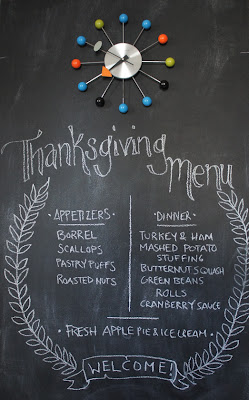 Thanksgiving
Menu
· APPETIZERS ·
BORREL
SCALLOPS
PASTRY PUFFS
ROASTED NUTS
· DINNER ·
TURKEY & HAM
MASHED POTATO
STUFFING
BUTTERNUT SQUASH
GREEN BEANS
ROLLS
CRANBERRY SAUCE
· FRESH APPLE PIE & ICE CREAM ·
WELCOME!